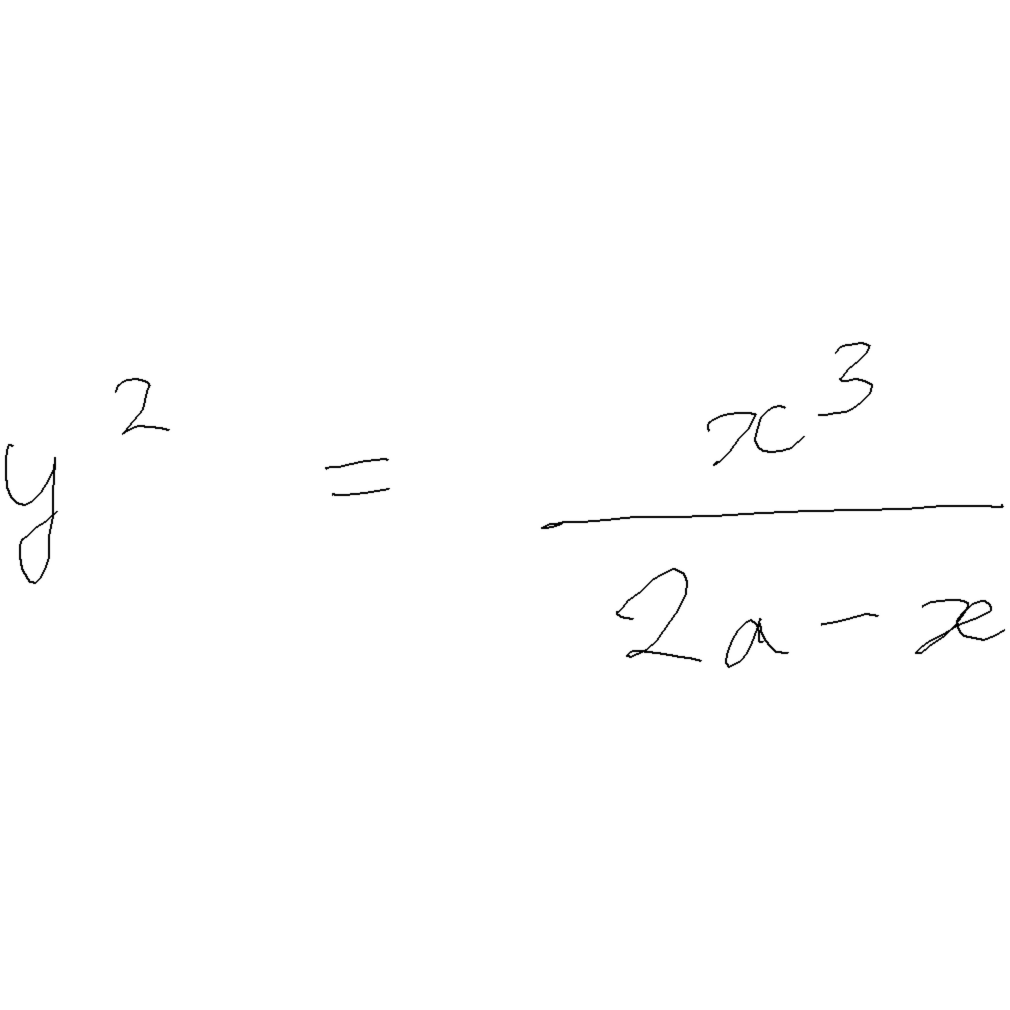 y^2 = \frac{x^3}{2a - x}